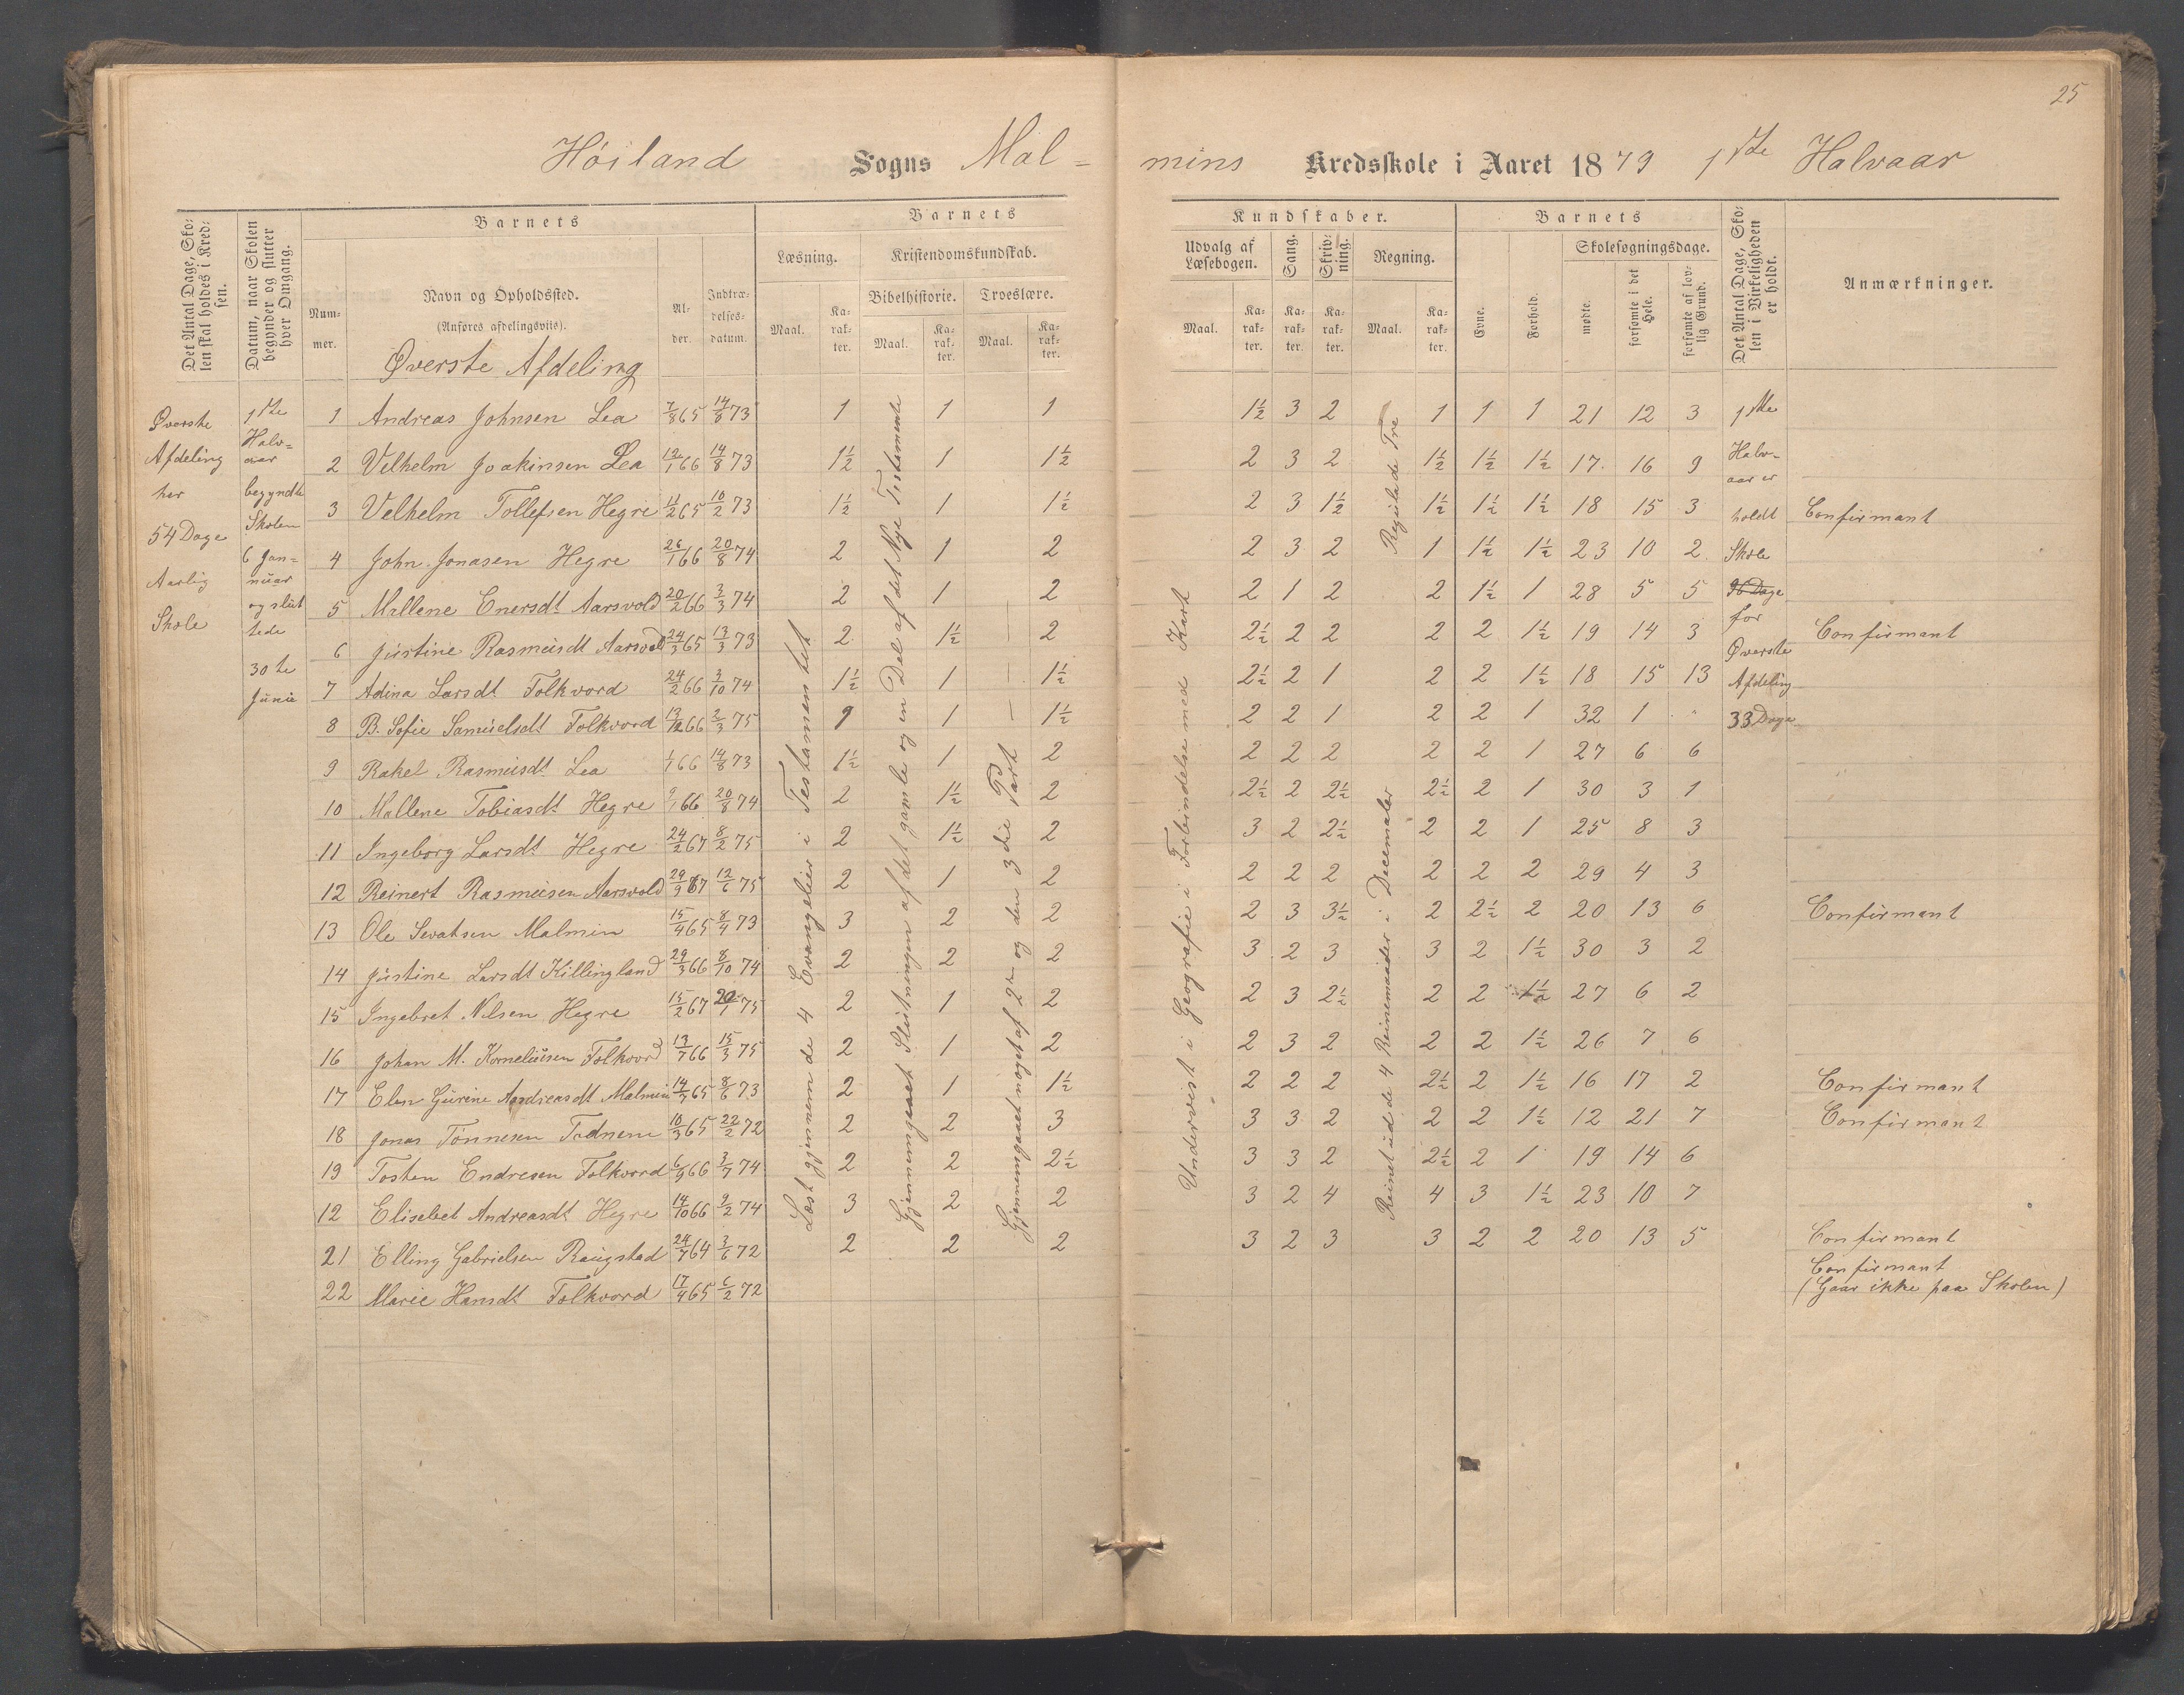 25
Høiland Sogns Mal-
mins Kredsskole i Aaret 1879 1ste Halvaar
Det Antal Dage, Skolen skal holdes i Kredsen.
Datum, naar Skolen begynder og slutter hver Omgang.
Barnets
Nummer.
Navn og Opholdssted.
(Anføres afdelingsvis).
Alder.
Indtrædelsesdatum.
Barnets
Læsning.
Kristendomskundskab.
Bibelhistorie. Troeslære.
Maal. Karakter. Maal. Karakter. Maal. Karakter.
Kundskaber.
Udvalg af Læsebogen.
Sang.
Skrivning.
Regning.
Maal. Karakter. Karakter. Karakter. Maal. Karakter.
Barnets
Evne.
Forhold.
Skolesøgningsdage.
mødte.
forsømte i det Hele.
forsømte af lovlig Grund.
Det Antal Dage, Skolen i Virkeligheden er holdt.
Anmærkninger.
Øverste Afdeling
Øverste
Afdeling
har
54 Dage
Aarlig
Skole
1ste
Halv=
aar
begyndte
Skolen
6 Jan=
nuar
og slut
tede
30te
Junie
1 Andreas Johnsen Lea 7/8 65 14/8 73 1 1 1 1½ 3 2 1 1 1 21 12 3
2 Velhelm Joakinsen Lea 12/1 66 14/8 73 1½ 1 1½ 2 3 2 1½ 1½ 1½ 17 16 9
3 Velhelm Tollefsen Hegre 11/2 65 10/2 73 1½ 1 1½ 2 3 1½ 1½ 1½ 1½ 18 15 3 Confirmant
4 John Jonasen Hegre 26/1 66 20/8 74 2 1 2 2 3 2 1 1½ 1½ 23 10 2
5 Mallene Enersdt Aarsvold 20/2 66 3/3 74 2 1 2 2 1 2 2 1½ 1 28 5 5
6 Justine Rasmusdt Aarsvold 24/3 65 13/3 73 2 1½ — 2 2½ 2 2 2 2 1½ 19 14 3 Confirmant
7 Adina Larsdt Folkvord 24/2 66 3/10 74 1½ 1 — 1½ 2½ 2 1 2 2 1½ 18 15 13
8 B. Sofie Samuelsdt Folkvord 13/12 66 2/3 75 1 — 1½ 2 2 1 2 2 1 32 1 "
9 Rakel Rasmusdt Lea 1/1 66 14/8 73 1½ 1 2 2 2 2 2 2 1 27 6 6
10 Mallene Tobiasdt Hegre 9/1 66 20/8 74 2 1½ 2 2½ 2 2½ 2½ 2 1 30 3 1
11 Ingeborg Larsdt Hegre 24/2 67 8/2 75 2 1½ 2 3 2 2½ 2 2 1 25 8 3
12 Reinert Rasmusen Aarsvold 29/9 67 12/6 75 2 1 2 2 2 2 2 2 2 29 4 3
13 Ole Sivatsen Malmin 15/4 65 8/4 73 3 2 2 2 3 3½ 2 2½ 2 20 13 6 Confirmant
14 Justine Larsdt Killingland 29/3 66 8/10 74 2 2 2 3 2 3 3 2 1½ 30 3 2
15 Ingebret Nilsen Hegre 15/2 67 20/1 75 2 1 2 2 3 2½ 2 2 1½ 27 6 2
16 Johan M. Korneliusen Folkvord 13/7 66 15/3 75 2 1 2 2 3 2 2 2 1½ 26 7 6
17 Elen Gurine Aandreasdt Malmin 14/7 65 8/6 73 2 1 1½ 2 2 2 2½ 2 1½ 16 17 2 Confirmant
18 Jonas Tönnesen Tadnem 10/3 65 22/2 72 2 2 3 3 3 2 2 2 1½ 12 21 7 Confirmant
19 Tosten Endresen Folkvord 6/9 66 3/7 74 2 2 2½ 3 3 2 2½ 2 1 19 14 6
12 Elisebet Andreasdt Hegre 14/10 66 2/2 74 3 2 2 3 2 4 4 3 1½ 23 10 7
21 Elling Gabrielsen Raugstad 24/7 64 3/6 72 2 2 2 3 2 3 3 2 2 20 13 5 Confirmant
22 Marie Hansdt Folkvord 17/4 65 6/2 72 Confirmant
(Gaar ikke paa Skolen)
Læst gjennem de 4 Evangelier i Testamentet
Gjennemgaaet Slutningen af det gamle og en Del af det Nye Testamente
Gjennemgaaet noget af 2den og den 3die Part
Undervist i Geografie i Forbindelse med Kart
Reinet ud de 4 Reinemaader i Decemaler
Regulade Tre
1ste
Halv-
aar er
holdt
Skole
36 Dage
for
Øverste
Afdeling
33 Dage